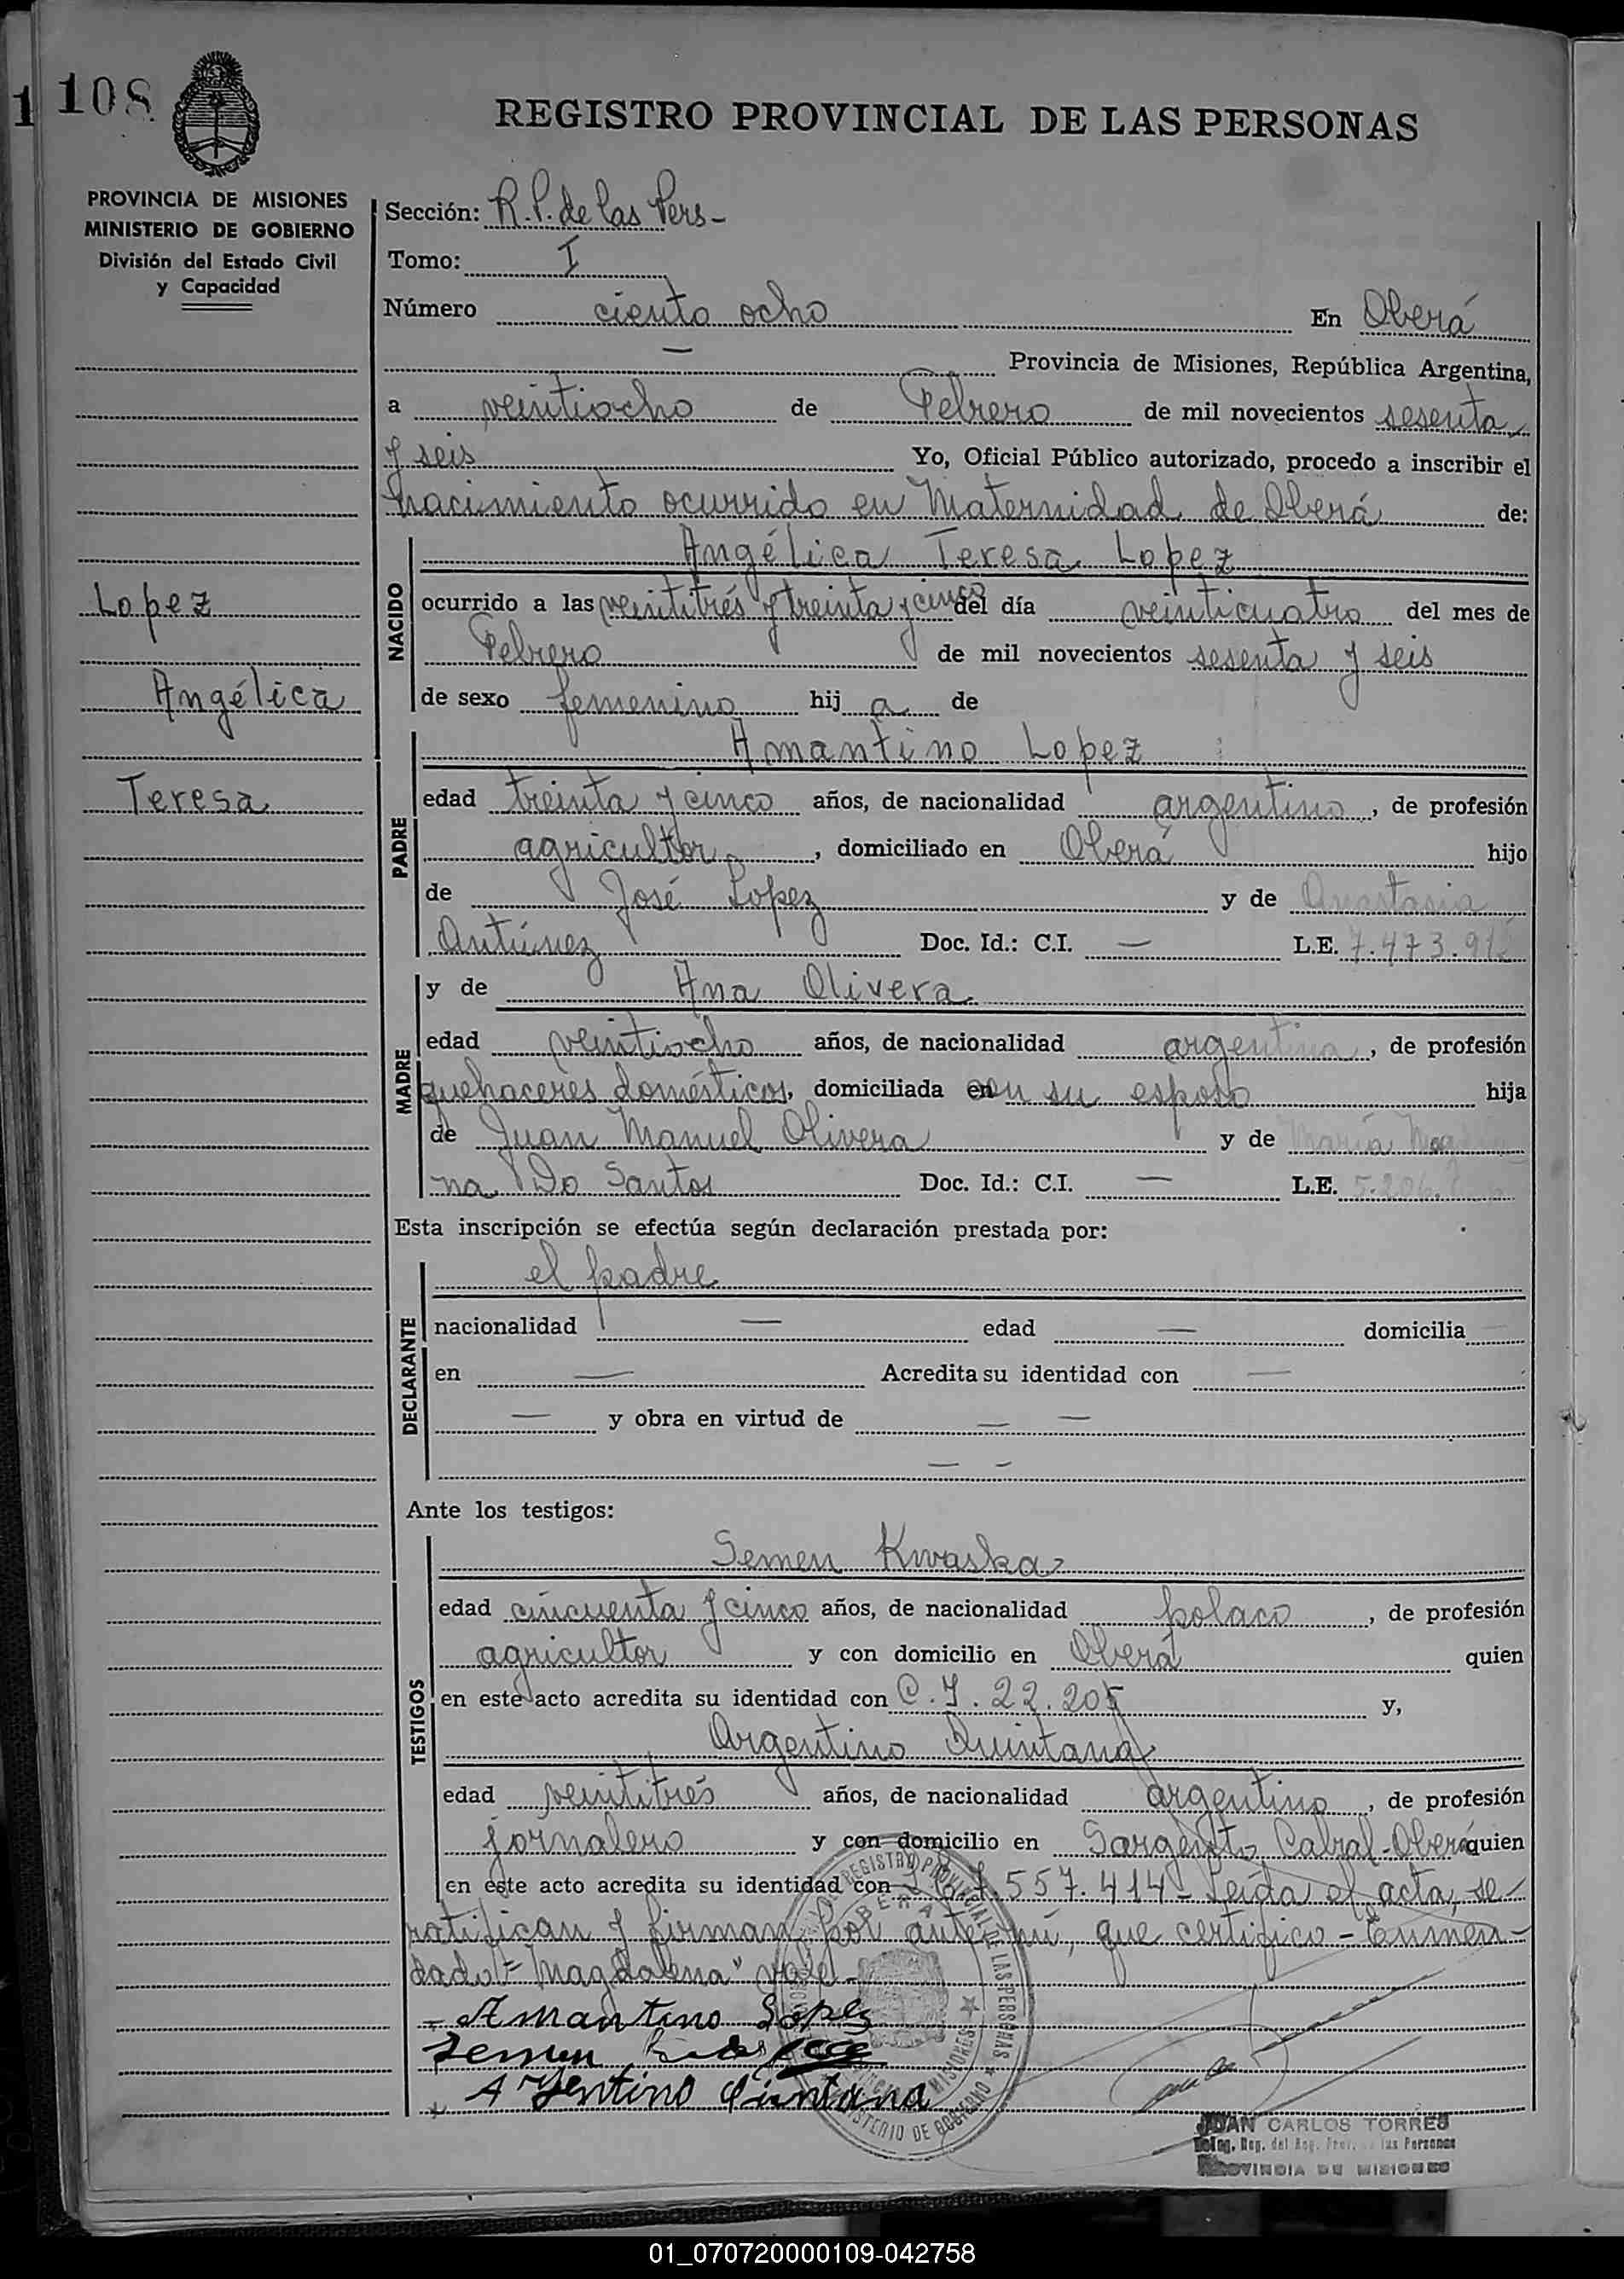 1 108
REGISTRO PROVINCIAL DE LAS PERSONAS
PROVINCIA DE MISIONES
MINISTERIO DE GOBIERNO
División del Estado Civil
y Capacidad
Sección: R.P. de las Pers-
Tomo: I
Número ciento ocho En Oberá
— Provincia de Misiones, República Argentina,
a veintiocho de Febrero de mil novecientos sesenta
y seis Yo, Oficial Público autorizado, procedo a inscribir el
nacimiento ocurrido en Maternidad de Oberá de:
Lopez
Angélica
Teresa
NACIDO
Angélica Teresa Lopez
ocurrido a las veintitrés y treinta y cinco del día veinticuatro del mes de
Febrero de mil novecientos sesenta y seis
de sexo femenino hij a de
PADRE
Amantino Lopez
edad treinta y cinco años, de nacionalidad argentino, de profesión
agricultor, domiciliado en Oberá hijo
de José Lopez y de Anastasia
Antúnez Doc. Id.: C.I. — L.E. 7.473.912
MADRE
y de Ana Olivera
edad veintiocho años, de nacionalidad argentina, de profesión
quehaceres domésticos, domiciliada en con su esposo hija
de Juan Manuel Olivera y de María
na Do Santos Doc. Id.: C.I. — L.E. 5.206.
Esta inscripción se efectúa según declaración prestada por:
DECLARANTE
el padre
nacionalidad — edad — domicilia —
en — Acredita su identidad con —
— y obra en virtud de — —
— -
Ante los testigos:
TESTIGOS
Semen Kwaska
edad cincuenta y cinco años, de nacionalidad polaco, de profesión
agricultor y con domicilio en Oberá quien
en este acto acredita su identidad con C.I. 22.205 y,
Argentino Quintana
edad veintitrés años, de nacionalidad argentino, de profesión
jornalero y con domicilio en Sargento Cabral-Oberá quien
en este acto acredita su identidad con 7.557.414 - Leída el acta, se
ratifican y firman por ante mí, que certifico - Enmen-
dado = "Magdalena" vale-
Amantino Lopez
Semen
Argentino Quintana
REGISTRO PROVINCIAL DE LAS PERSONAS
OBERA
MISIONES
MINISTERIO DE GOBIERNO
JUAN CARLOS TORRES
Deleg. Reg. del Reg. Prov. de las Personas
PROVINCIA DE MISIONES
01_070720000109-042758